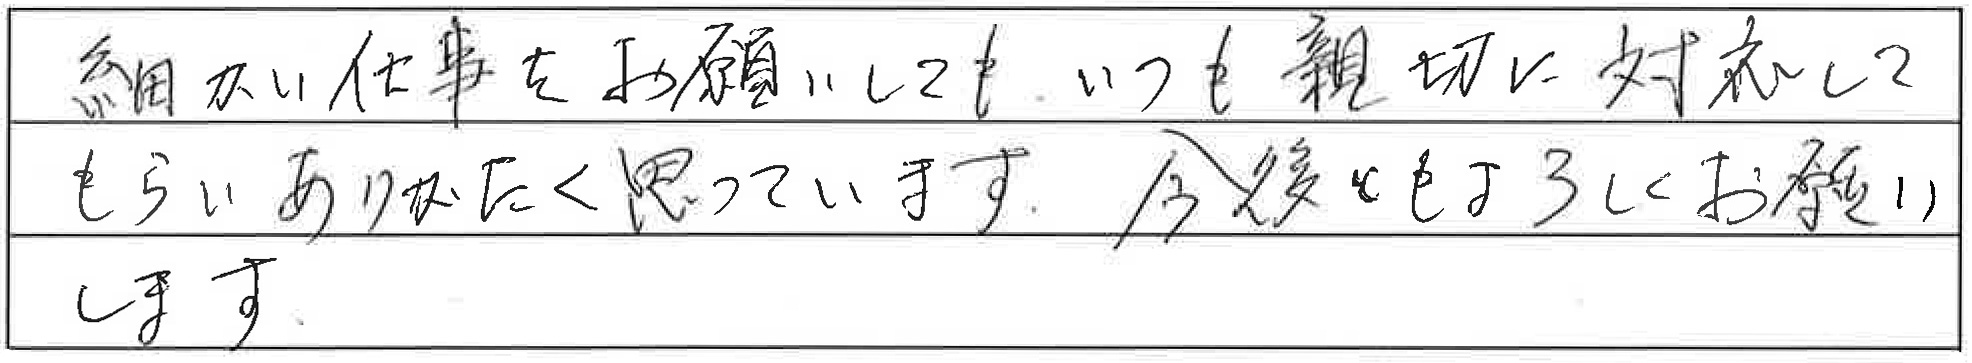 細かい仕事をお願いしても、いつも親切に対応して
もらいありがたく思っています。今後ともよろしくお願い
します。